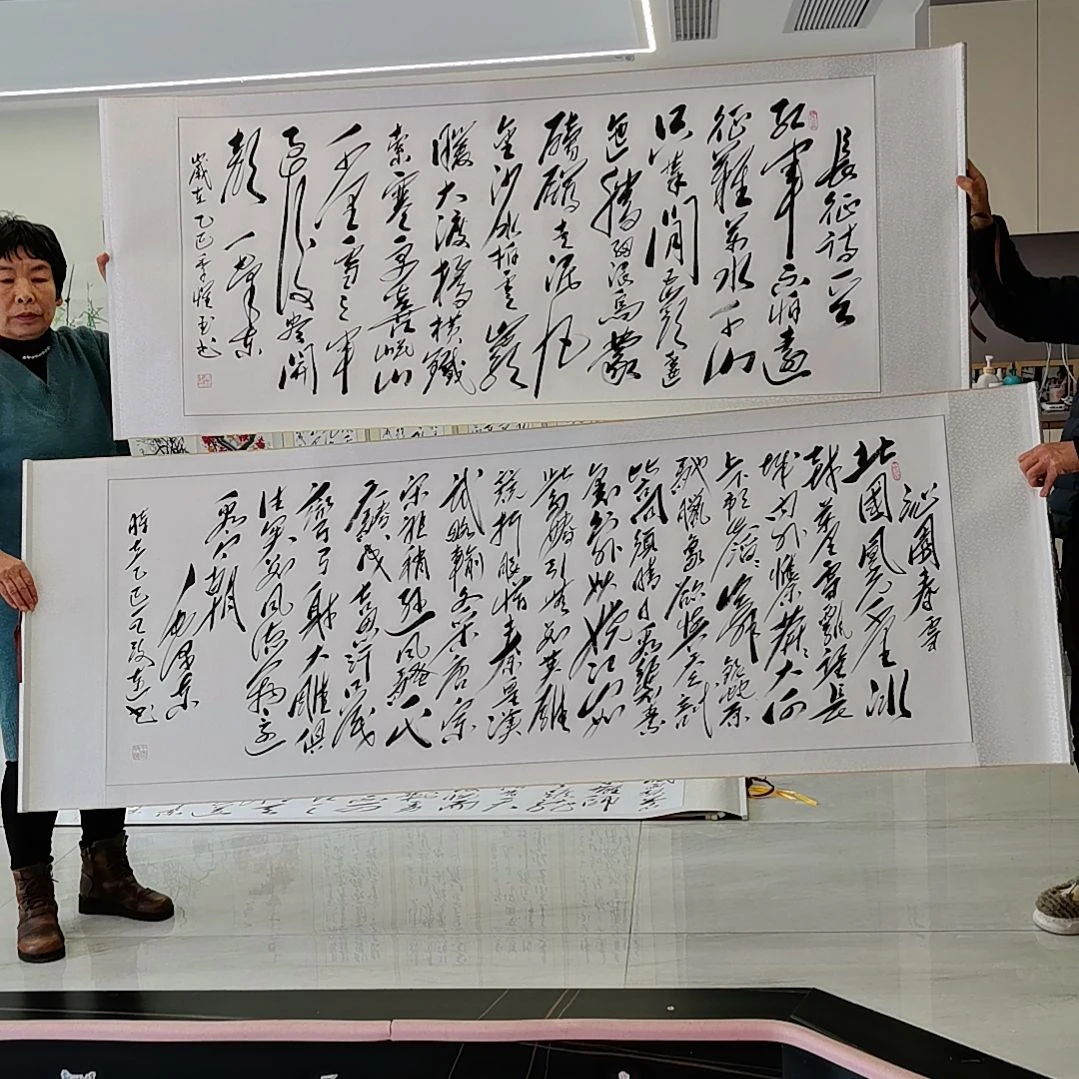 長征诗一首
红軍不怕遠
征難萬水千山
只等閒五嶺逶
迤腾细浪烏蒙
磅礴走泥丸
金沙水拍雲
暖大渡橋横鐵
索寒更喜岷山
千里雪三軍
過後盡開
顏 毛澤東
歲在乙巳年 书
沁園春雪
北國風光千里冰
封萬里雪飘望長
城内外惟餘莽莽大河
上下顿失滔滔山舞銀蛇原
驰蠟象欲與天公試
比高須晴日看紅裝素
裹分外妖娆江山如
此多嬌引無数英雄
競折腰惜秦皇漢
武略輸文采唐宗
宋祖稍遜風騷一代
天驕成吉思汗只識
彎弓射大雕俱
往矣数風流人物還
看今朝
毛澤東
時在乙巳 书